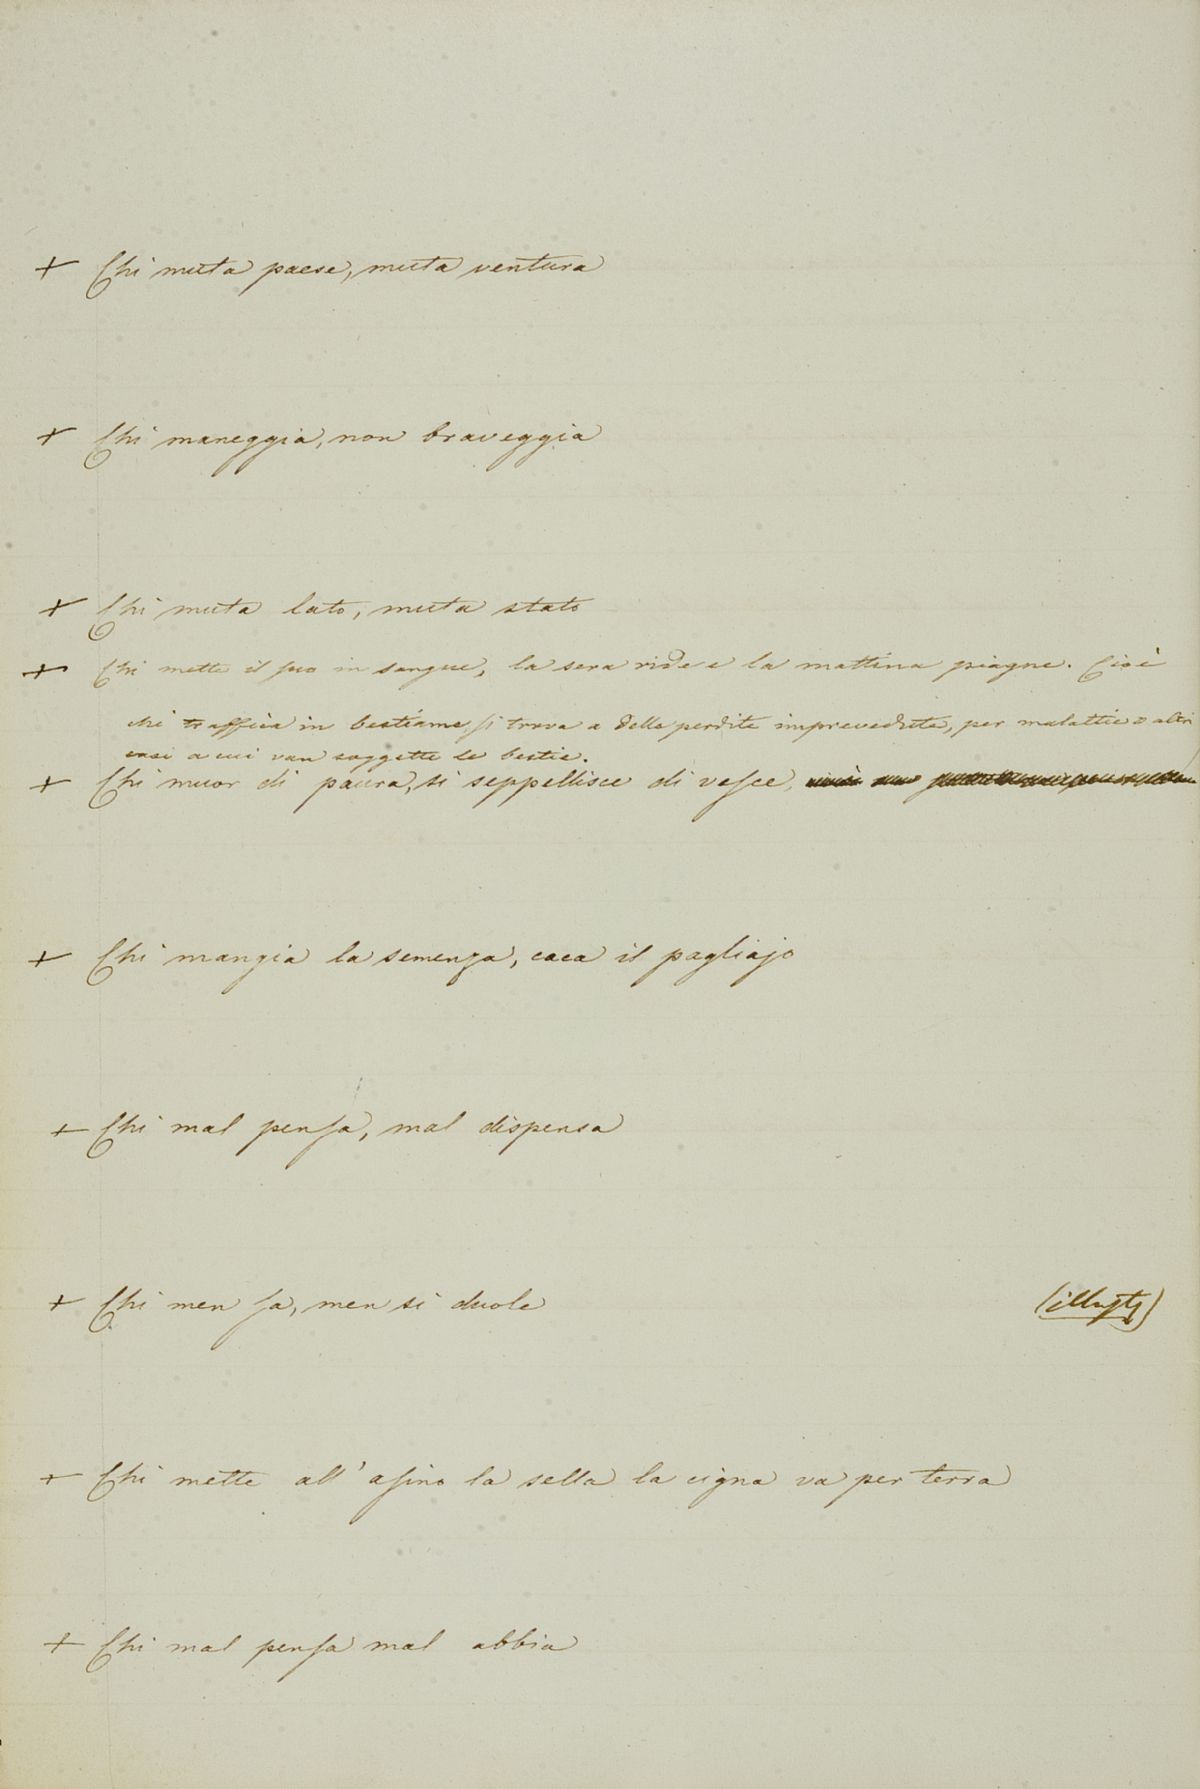 + Chi muta paese, muta ventura
+ Chi maneggia, non braveggia
+ Chi muta lato, muta stato
+ Chi mette il suo in sangue, la sera ride e la mattina piagne. Cioè
chi traffica in bestiame, si trova a delle perdite imprevedute, per malattie o altri
casi a cui van soggette le bestie.
+ Chi muor di paura, si seppellisce di vesce,
+ Chi mangia la semenza, caca il pagliajo
+ Chi mal pensa, mal dispensa
+ Chi men sa, men si duole (illustr)
+ Chi mette all'asino la sella la cigna va per terra
+ Chi mal pensa mal abbia